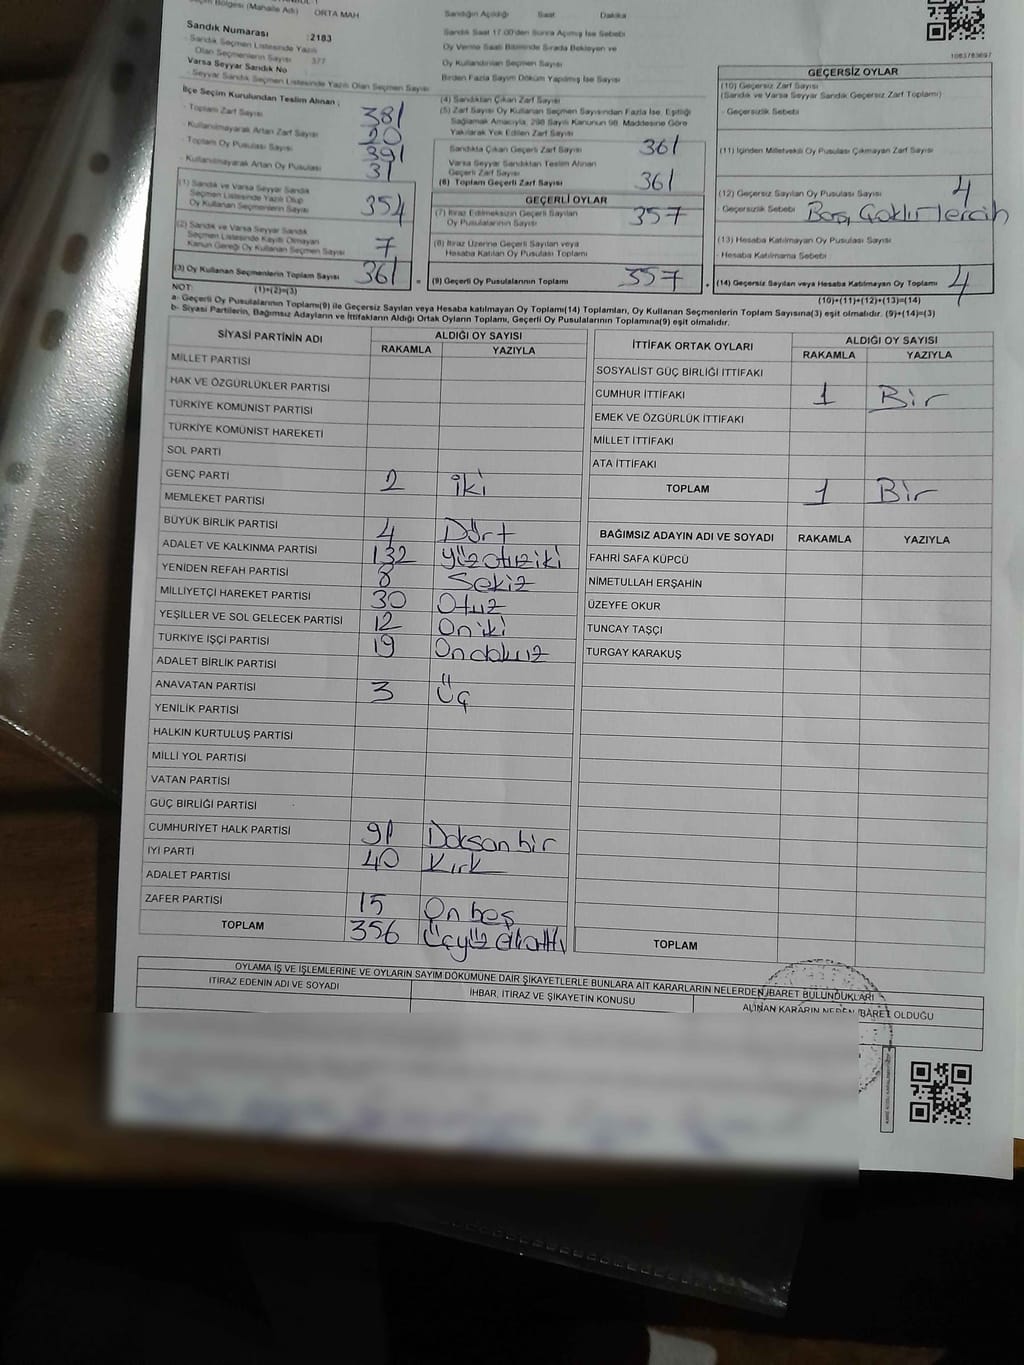 Seçim Bölgesi (Mahalle Adı) ORTA MAH
Sandık Numarası :2183
- Sandık Seçmen Listesinde Yazılı
Olan Seçmenlerin Sayısı 377
Varsa Seyyar Sandık No
- Seyyar Sandık Seçmen Listesinde Yazılı Olan Seçmen Sayısı
Sandığın Açıldığı Saat Dakika
Sandık Saat 17:00'den Sonra Açılmış İse Sebebi
Oy Verme Saati Bitiminde Sırada Bekleyen ve
Oy Kullandırılan Seçmen Sayısı
Birden Fazla Sayım Döküm Yapılmış İse Sayısı
1083783697
İlçe Seçim Kurulundan Teslim Alınan ;
- Toplam Zarf Sayısı 381
- Kullanılmayarak Artan Zarf Sayısı 20
- Toplam Oy Pusulası Sayısı 391
- Kullanılmayarak Artan Oy Pusulası 31
(1) Sandık ve Varsa Seyyar Sandık
Seçmen Listesinde Yazılı Olup
Oy Kullanan Seçmenlerin Sayısı 354
(2) Sandık ve Varsa Seyyar Sandık
Seçmen Listesinde Kayıtlı Olmayan
Kanun Gereği Oy Kullanan Seçmen Sayısı 7
(3) Oy Kullanan Seçmenlerin Toplam Sayısı 361
(4) Sandıktan Çıkan Zarf Sayısı
(5) Zarf Sayısı Oy Kullanan Seçmen Sayısından Fazla İse, Eşitliği
Sağlamak Amacıyla, 298 Sayılı Kanunun 98. Maddesine Göre
Yakılarak Yok Edilen Zarf Sayısı
Sandıkta Çıkan Geçerli Zarf Sayısı 361
Varsa Seyyar Sandıktan Teslim Alınan
Geçerli Zarf Sayısı
(6) Toplam Geçerli Zarf Sayısı 361
GEÇERLİ OYLAR
(7) İtiraz Edilmeksizin Geçerli Sayılan
Oy Pusulalarının Sayısı 357
(8) İtiraz Üzerine Geçerli Sayılan veya
Hesaba Katılan Oy Pusulası Toplamı
= (9) Geçerli Oy Pusulalarının Toplamı 357
GEÇERSİZ OYLAR
(10) Geçersiz Zarf Sayısı
(Sandık ve Varsa Seyyar Sandık Geçersiz Zarf Toplamı)
- Geçersizlik Sebebi
(11) İçinden Milletvekili Oy Pusulası Çıkmayan Zarf Sayısı
(12) Geçersiz Sayılan Oy Pusulası Sayısı 4
- Geçersizlik Sebebi Boş,
(13) Hesaba Katılmayan Oy Pusulası Sayısı
- Hesaba Katılmama Sebebi
+ (14) Geçersiz Sayılan veya Hesaba Katılmayan Oy Toplamı 4
NOT: (1)+(2)=(3)
(10)+(11)+(12)+(13)=(14)
a- Geçerli Oy Pusulalarının Toplamı(9) ile Geçersiz Sayılan veya Hesaba katılmayan Oy Toplamı(14) Toplamları, Oy Kullanan Seçmenlerin Toplam Sayısına(3) eşit olmalıdır. (9)+(14)=(3)
b- Siyasi Partilerin, Bağımsız Adayların ve İttifakların Aldığı Ortak Oyların Toplamı, Geçerli Oy Pusulalarının Toplamına(9) eşit olmalıdır.
SİYASİ PARTİNİN ADI
ALDIĞI OY SAYISI
RAKAMLA YAZIYLA
MİLLET PARTİSİ
HAK VE ÖZGÜRLÜKLER PARTİSİ
TÜRKİYE KOMÜNİST PARTİSİ
TÜRKİYE KOMÜNİST HAREKETİ
SOL PARTİ
GENÇ PARTİ 2 iki
MEMLEKET PARTİSİ
BÜYÜK BİRLİK PARTİSİ 4 Dört
ADALET VE KALKINMA PARTİSİ 132 yüzotuziki
YENİDEN REFAH PARTİSİ 8 Sekiz
MİLLİYETÇİ HAREKET PARTİSİ 30 Otuz
YEŞİLLER VE SOL GELECEK PARTİSİ 12 Oniki
TÜRKİYE İŞÇİ PARTİSİ 19 Ondokuz
ADALET BİRLİK PARTİSİ
ANAVATAN PARTİSİ 3 Üç
YENİLİK PARTİSİ
HALKIN KURTULUŞ PARTİSİ
MİLLİ YOL PARTİSİ
VATAN PARTİSİ
GÜÇ BİRLİĞİ PARTİSİ
CUMHURİYET HALK PARTİSİ 91 Doksan bir
İYİ PARTİ 40 Kırk
ADALET PARTİSİ
ZAFER PARTİSİ 15 On beş
TOPLAM 356 Üçyüz elli altı
İTTİFAK ORTAK OYLARI
ALDIĞI OY SAYISI
RAKAMLA YAZIYLA
SOSYALİST GÜÇ BİRLİĞİ İTTİFAKI
CUMHUR İTTİFAKI 1 Bir
EMEK VE ÖZGÜRLÜK İTTİFAKI
MİLLET İTTİFAKI
ATA İTTİFAKI
TOPLAM 1 Bir
BAĞIMSIZ ADAYIN ADI VE SOYADI RAKAMLA YAZIYLA
FAHRİ SAFA KÜPCÜ
NİMETULLAH ERŞAHİN
ÜZEYFE OKUR
TUNCAY TAŞÇI
TURGAY KARAKUŞ
TOPLAM
OYLAMA İŞ VE İŞLEMLERİNE VE OYLARIN SAYIM DÖKÜMÜNE DAİR ŞİKAYETLERLE BUNLARA AİT KARARLARIN NELERDEN İBARET BULUNDUKLARI
İTİRAZ EDENİN ADI VE SOYADI
İHBAR, İTİRAZ VE ŞİKAYETİN KONUSU
ALINAN KARARIN NEDEN İBARET OLDUĞU